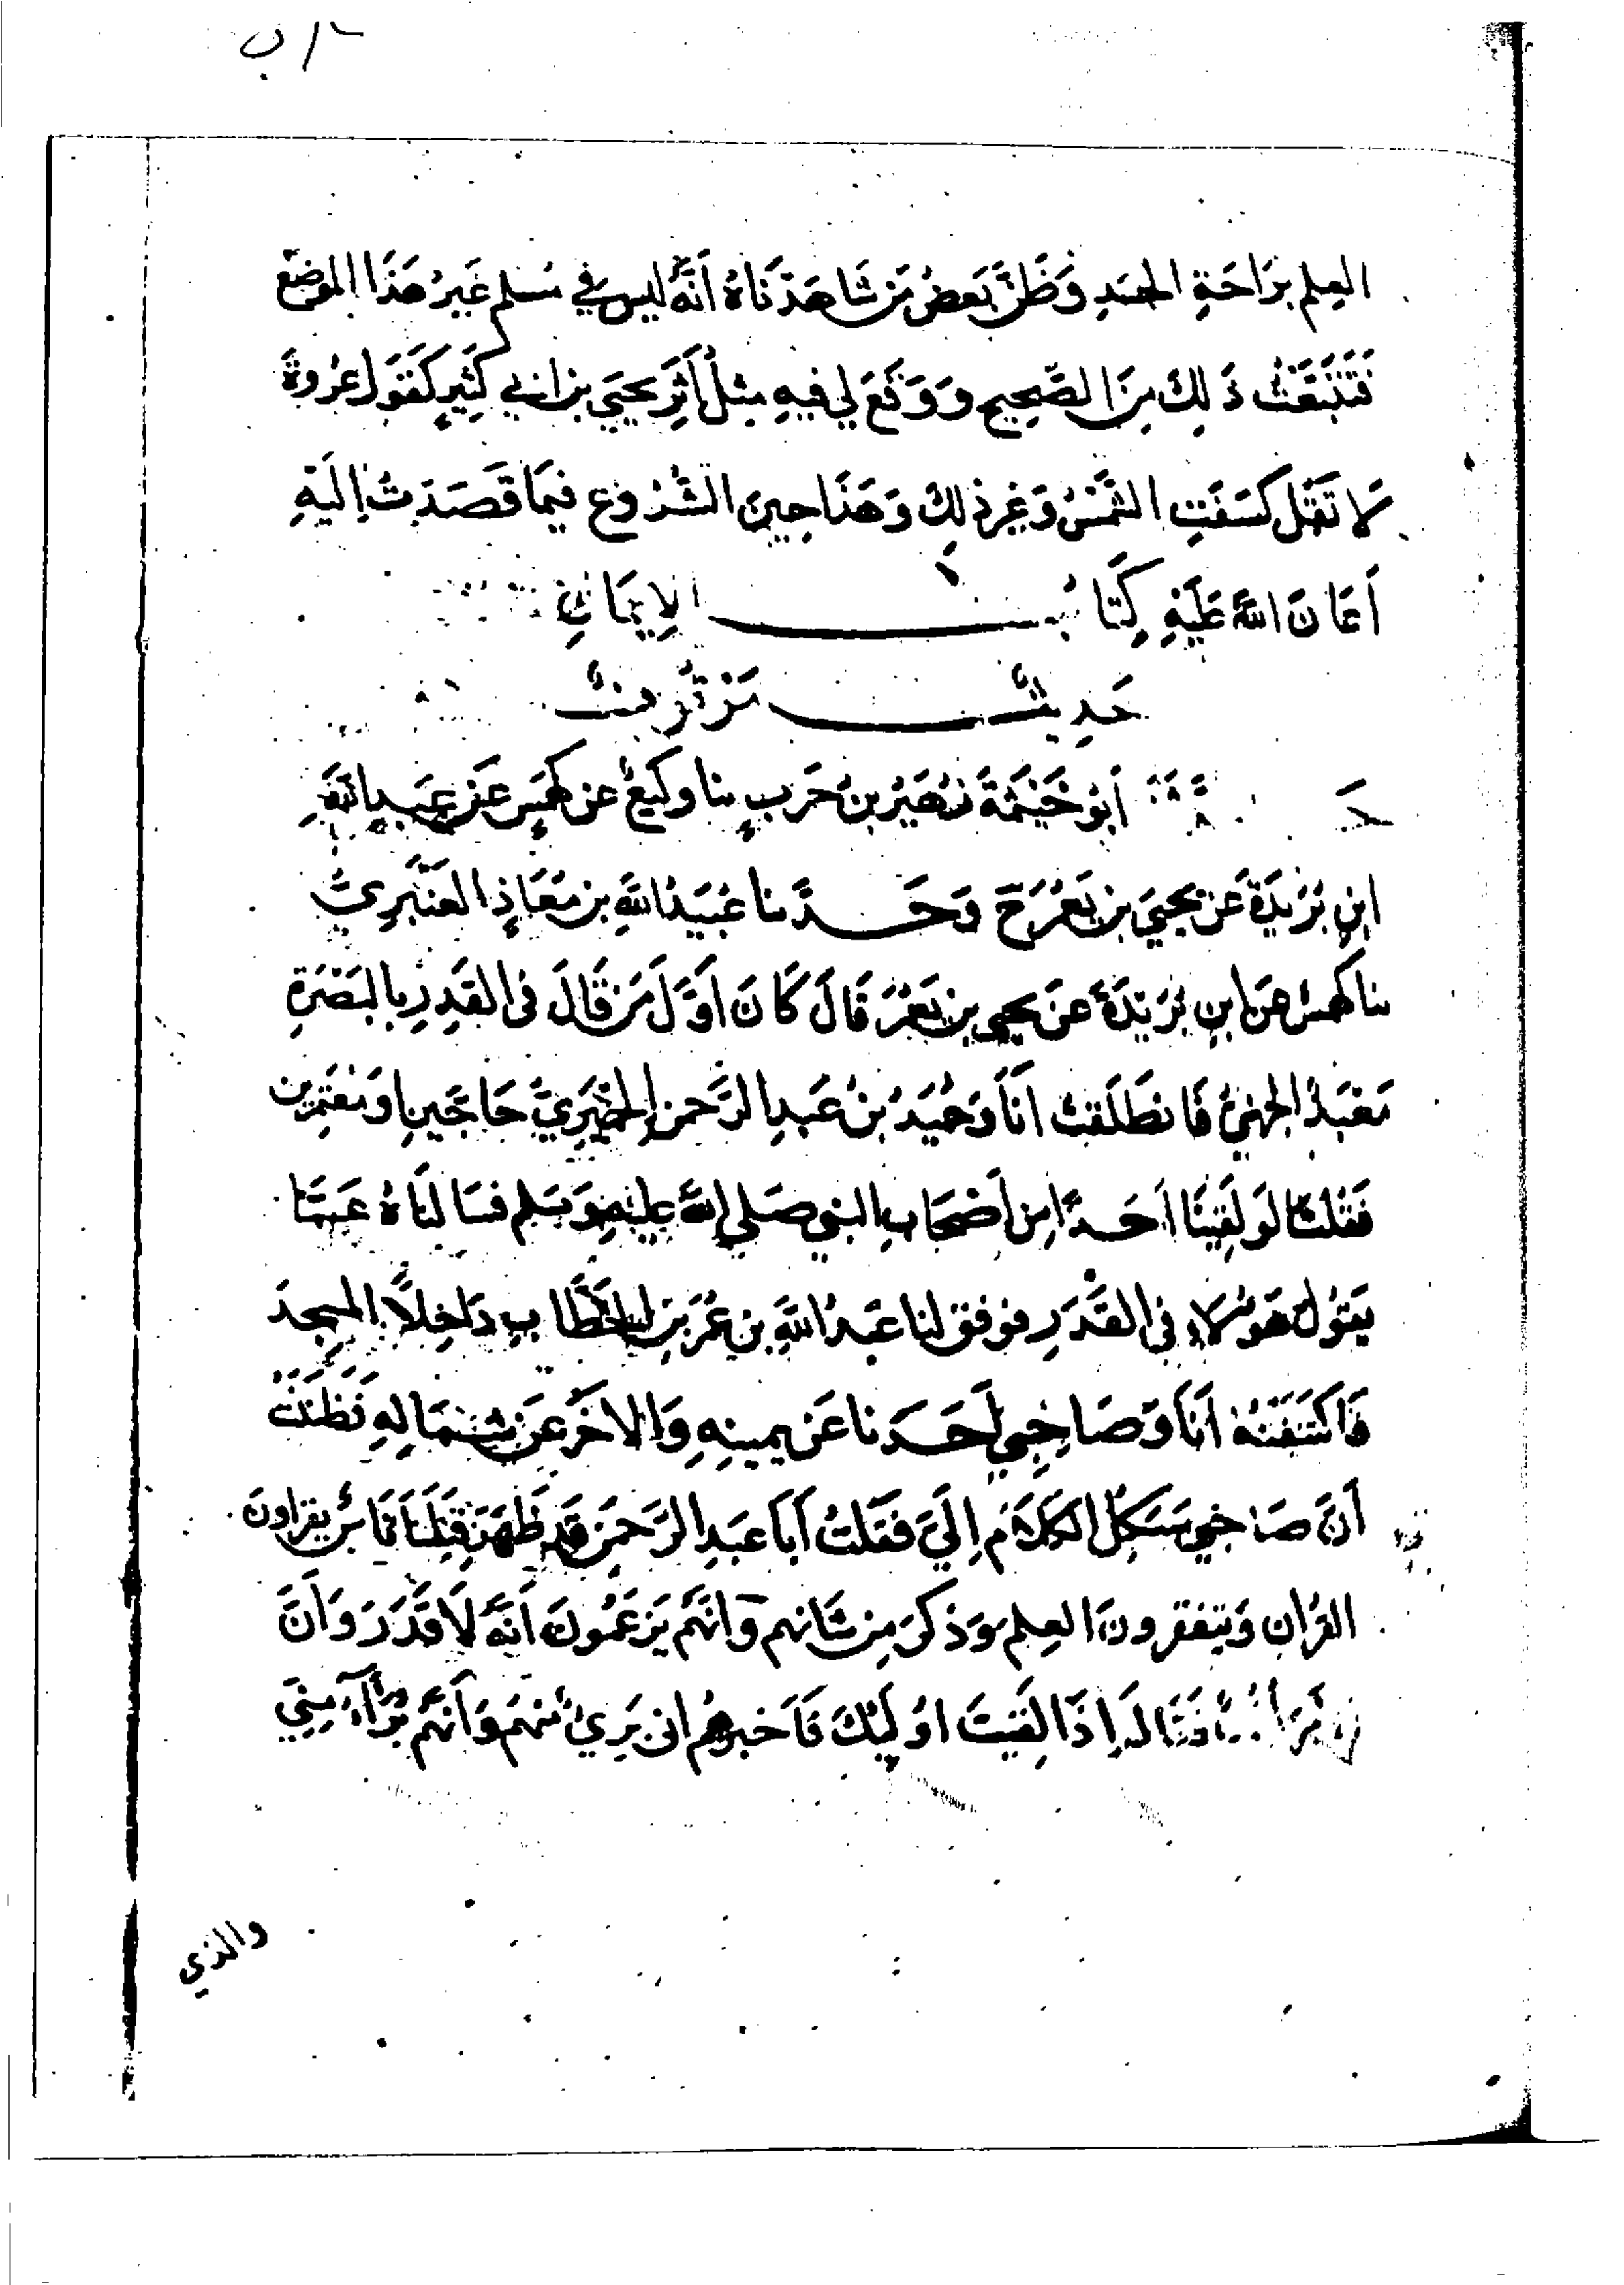 ب / ٢
العِلم بِرَاحَةِ الجسَدِ وَظَنَّ بَعضُ مَن شَاهَدنَاهُ اَنَّه ليسَ في مُسلم غَيرُ هَذَا الموضع
فَتَتَبَّعتُ ذَلِكَ مِنَ الصَّحِيح وَوَقَعَ لي فيهِ مِثلُ أَثَرِ يحيَى بن ابي كَثِيرٍ كَقَولِ عُروةَ
لَا تَقُل كسَفَتِ الشَّمسُ وَغير ذلِكَ وَهَذَا حِينَ الشُّرُوع فيمَا قَصَدتُ اِليَهِ
أَعَانَ اللهُ عَلَيهِ كِتَابُ الاِيمَانِ
حَدِيثٌ
أَبُو خَيثَمَةَ زُهَيرُ بنُ حَربٍ نا وكيعٌ عن كهمَسٍ عَن عَبدِ اللهِ
ابنِ بُرَيدَةَ عَن يحيَى بن يَعمَرَ ح وَحَدَّثنا عُبَيدُ اللهِ بن مُعَاذٍ العَنبَرِيُّ
نا كهمسٌ عَن ابنِ بُرَيدَةَ عَن يحيى بن يَعمَرَ قَالَ كَانَ اَوَّلَ مَن قَالَ في القَدَرِ بِالبَصرَةِ
مَعبَدٌ الجهنيُّ فَانطَلَقتُ اَنَا وَحُمَيدُ بنُ عَبدِ الرَّحمن الحِميَرِيُّ حَاجَّينِ اوَ مُعتَمِرَين
فَقُلنَا لَو لَقِينَا اَحَدًا مِن اَصحَابِ النبي صَلى اللهُ عَلَيهِ وَسَلم فسَالنَاهُ عَمَّا
يَقُولُ هَؤُلَاءِ في القَدَرِ فوفق لنا عَبدُ اللهِ بن عُمَرَ بنِ الخَطَّابِ دَاخِلًا المسجِدَ
فَاكتَنَفتُهُ اَنَا وَصَاحِبي اَحَدنا عَن يمينِهِ وَالاخَرُ عَن شمَالِهِ فَظَنَنتُ
اَنَّ صَاحِبي سَيَكِلُ الكَلَامَ اِلَيَّ فَقُلتُ اَبَا عَبدِ الرَّحمَن قَد ظَهَرَ قِبَلَنَا نَاسٌ يقراونَ
القُرانَ وَيتفقرونَ العِلم وَذكَرَ مِن شَانهم وَانَّهُم يَزعُمُونَ اَنَّه لَا قَدَرَ وَاَنَّ
فَقَالَ اِذَا لَقِيتَ اوُلَئِكَ فَاَخبرهُم اني بَرِيءٌ مِنهُم وَاَنَّهُم بُرَآءُ مِنِّي
والذي